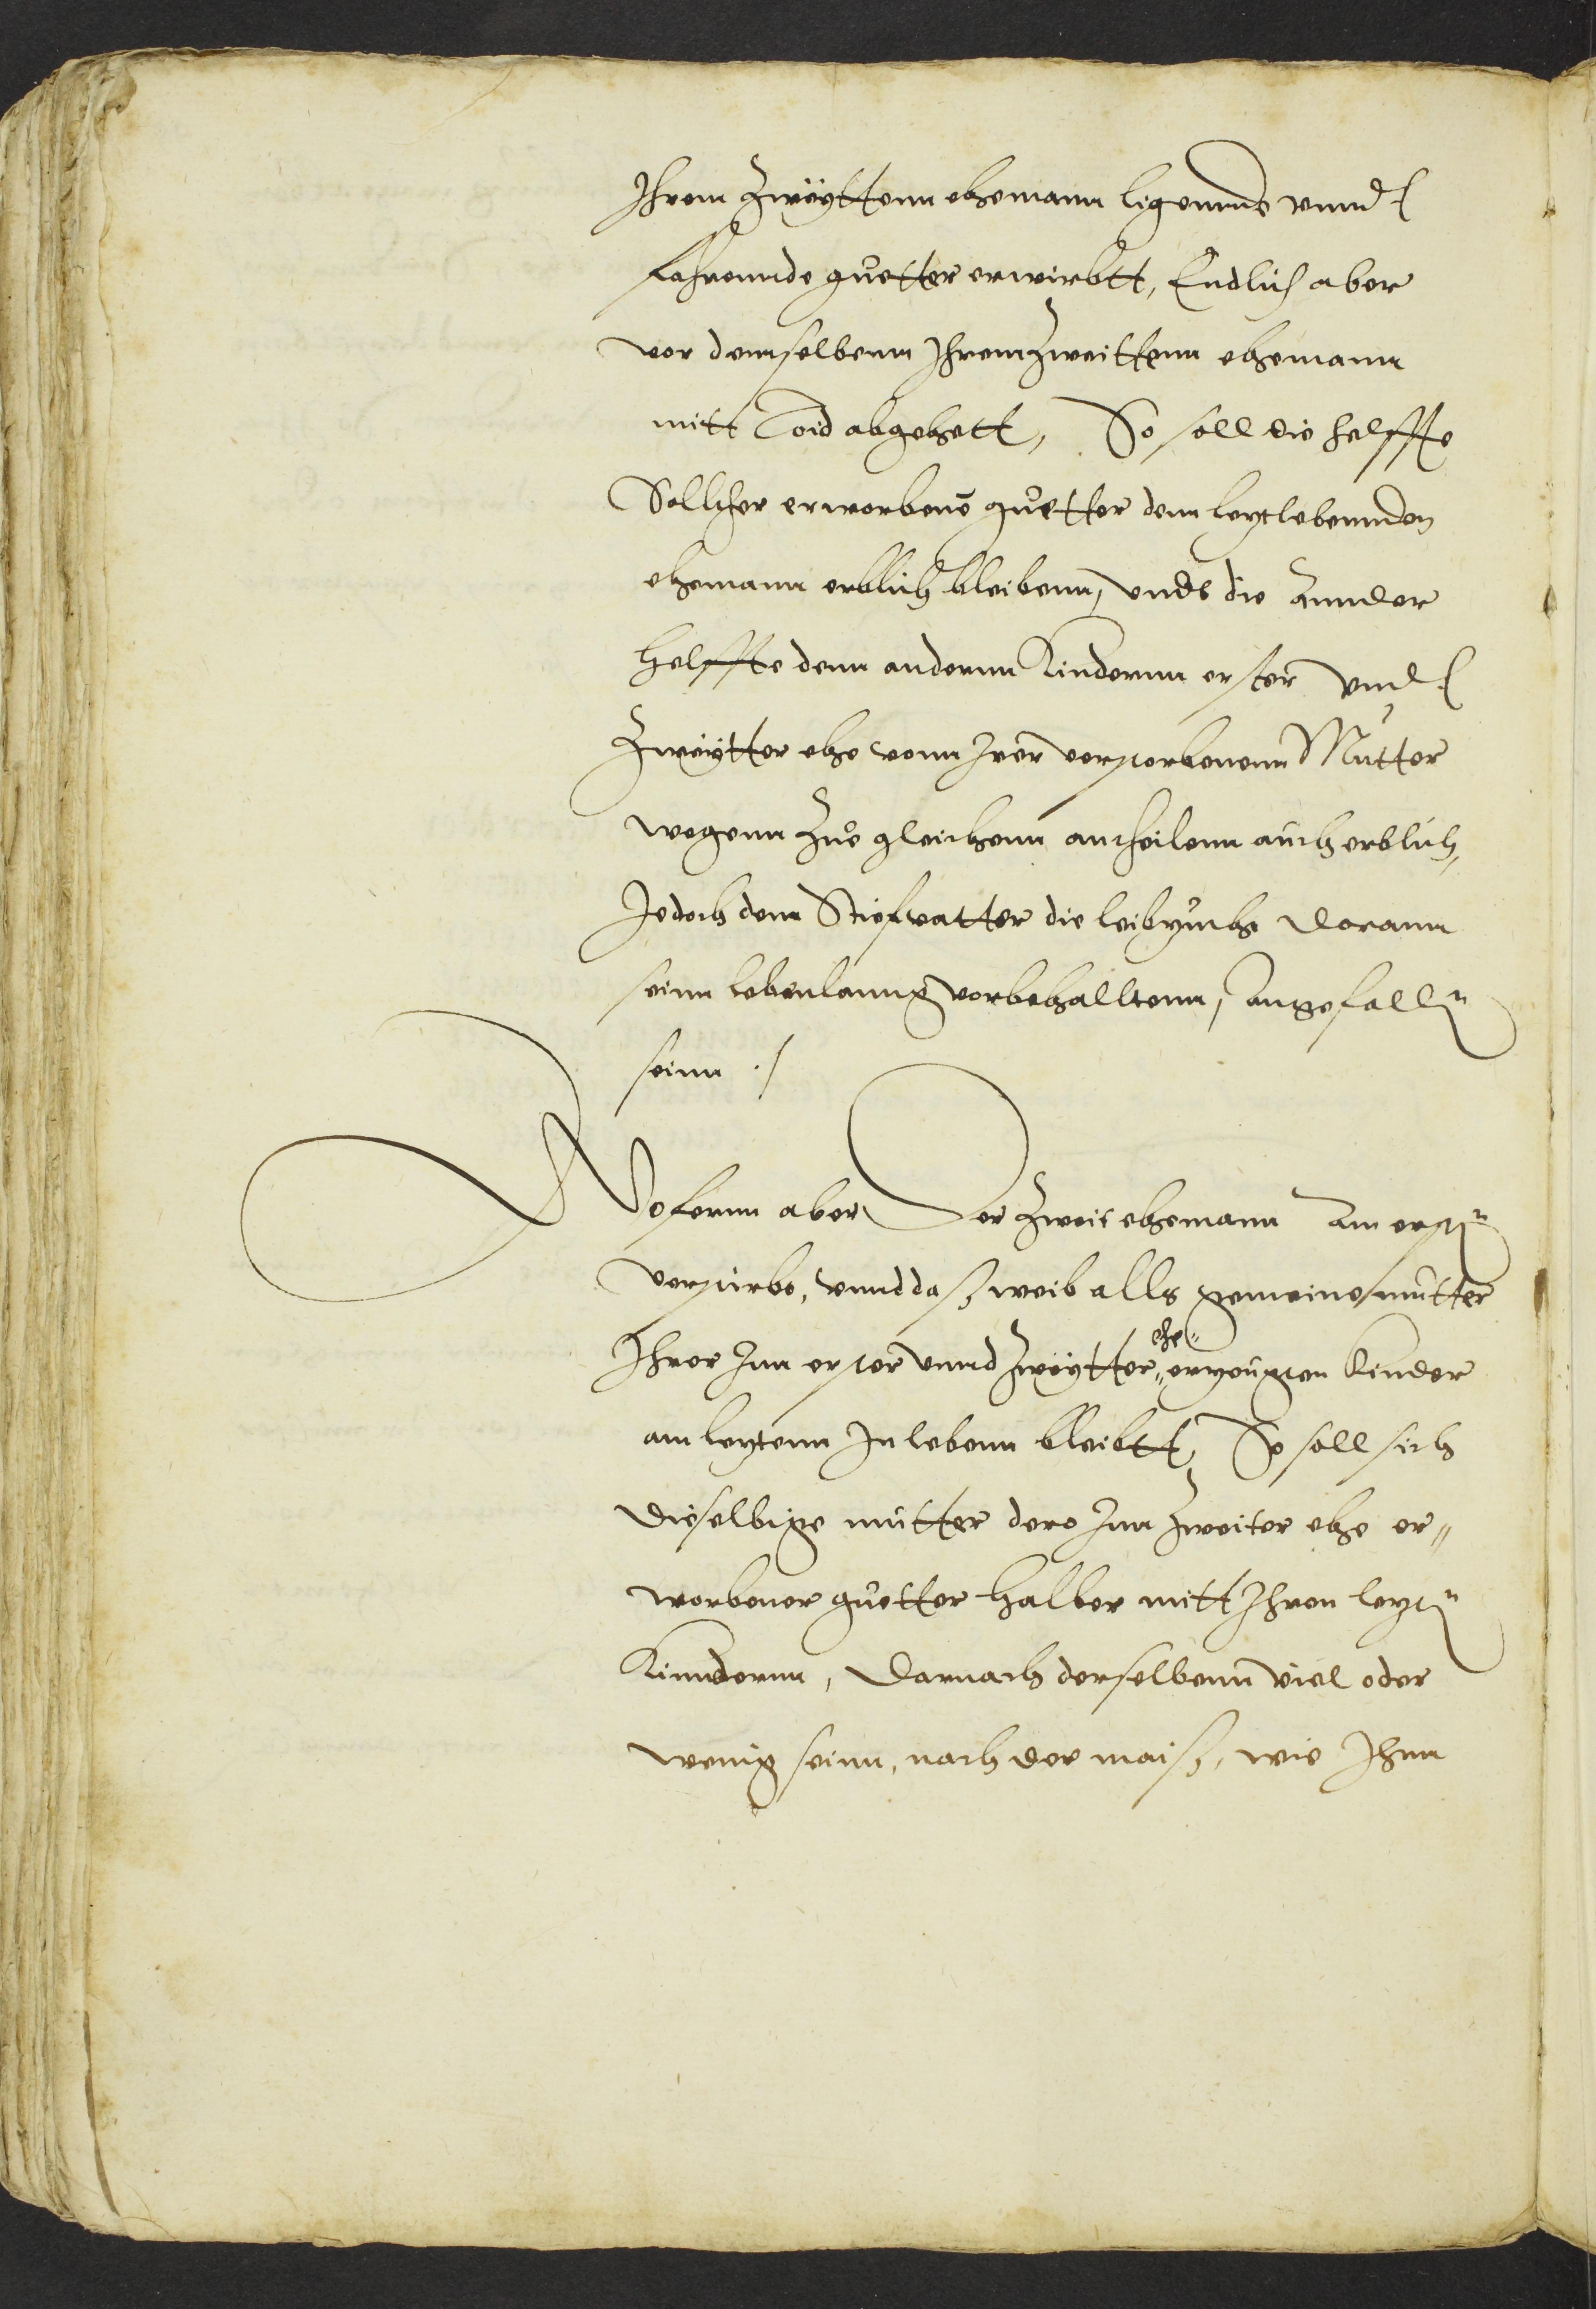 Ihrem Zweyttenn ehemann ligennde vnnd
fahrennde guetter erwirbtt, Endlich aber
vor demselbenn Ihrem Zweittenn ehemann
mitt Toid abgehett, So soll die helffte
Sollcher erworbene guetter dem letzlebennden
ehemann erblich bleibenn, vnd die Annder
helffte denn andernn Kindernn erster vnd
Zweytter ehe vonn Irer verstorbenenn Mutter
wegenn Zue gleichenn antheilenn auch erblich,
Jedoch dem Stiefvatter die leibzucht darann
seinn lebenlanng vorbehalltenn, Angefalln
seinn ./
Wofernn aber Der Zweit ehemann Am erstn
verstürbe, vnnd daß weib allß gemeine mutter
Ihrer Inn erster vnnd Zweytter ehe erzeugten Kinder
am letztenn In lebenn bleibtt, So soll sich
dieselbige mutter dero Inn Zweiter ehe er„
worbener guetter halber mitt Ihren letztn
Kinndernn, Darnach derselbenn viel oder
wenig seinn, nach der maiß, wie Ihnn